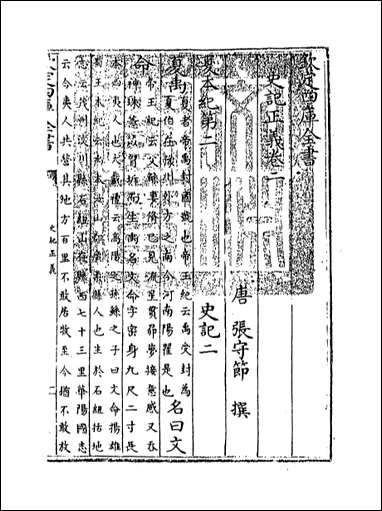 欽定四庫全書
史記正義卷二
唐 張守節 撰
夏本紀第二 史記二
夏禹 夏者帝禹封國號也帝王紀云禹受封為
夏伯在豫州外方之南今河南陽翟是也 名曰文
命 帝王紀云父鯀妻脩己見流星貫昴夢接意感又吞
神珠薏苡胷坼而生禹名文命字密身九尺二寸長
本西夷人也大戴禮云高陽之孫鯀之子曰文命揚雄
蜀王本紀云禹本汶山郡廣柔縣人也生於石紐括地
志云茂州汶川縣石紐山在縣西七十三里華陽國志
云今夷人共營其地方百里不敢居牧至今猶不敢放
欽定四庫全書 史記正義